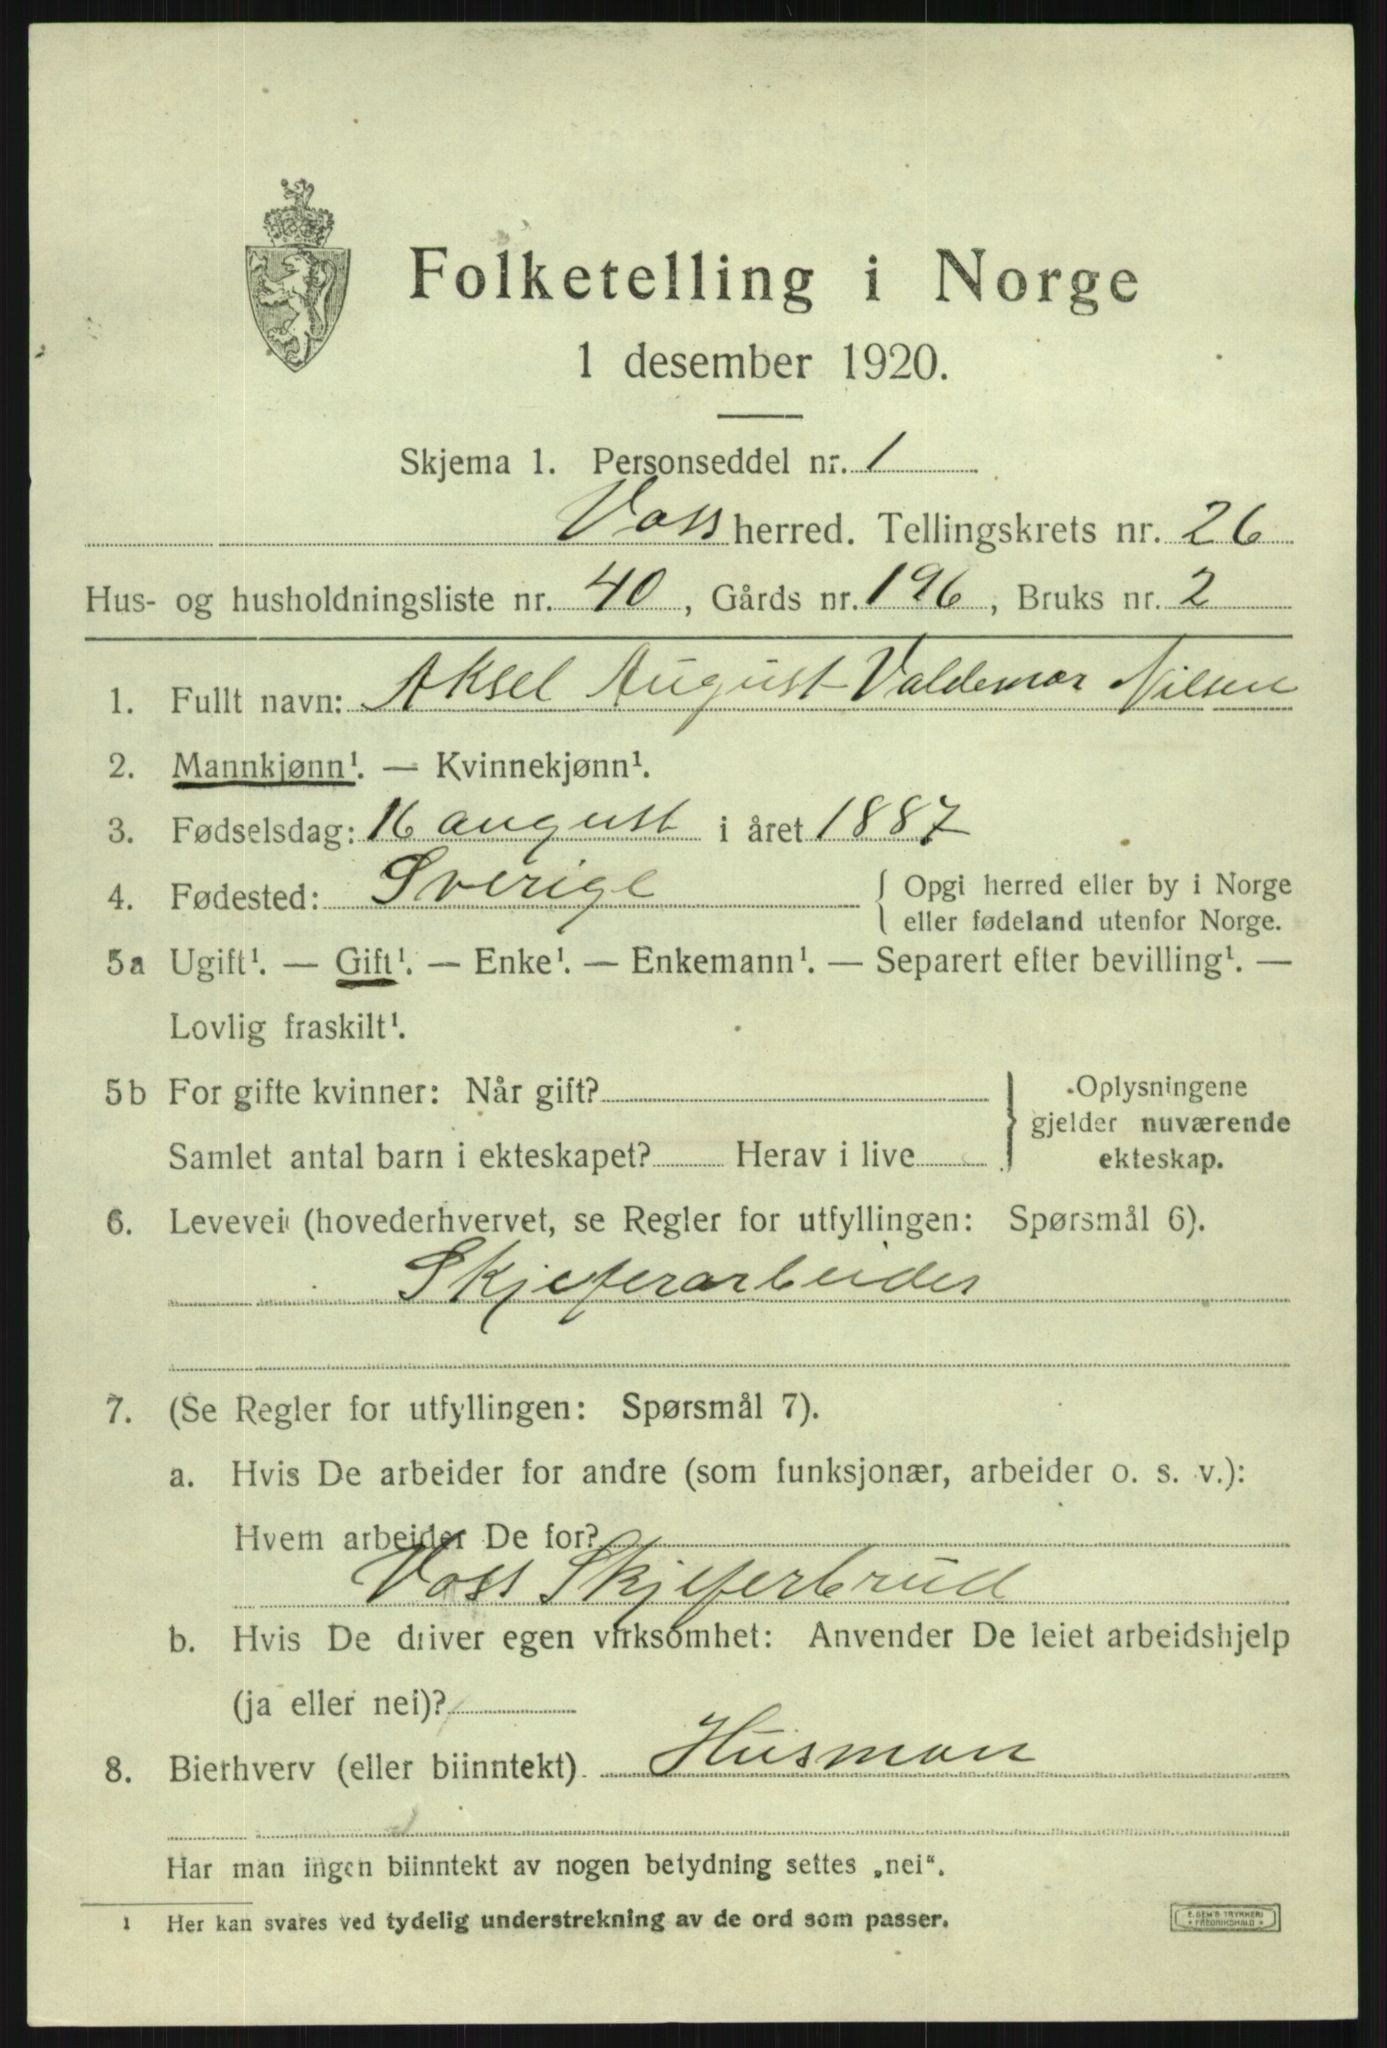 Folketelling i Norge
1 desember 1920.
Skjema 1. Personseddel nr. 1
Voss herred. Tellingskrets nr. 26
Hus- og husholdningsliste nr. 40, Gårds nr. 196, Bruks nr. 2
1. Fullt navn: Aksel August Valdemar Nilsen
2. Mannkjønn¹. — Kvinnekjønn¹.
3. Fødselsdag: 16 august i året 1887
4. Fødested: Sverige { Opgi herred eller by i Norge
eller fødeland utenfor Norge.
5a Ugift¹. — Gift¹. — Enke¹. — Enkemann¹. — Separert efter bevilling¹. —
Lovlig fraskilt¹.
5b For gifte kvinner: Når gift? } Oplysningene
gjelder nuværende
Samlet antal barn i ekteskapet? Herav i live ekteskap.
6. Levevei (hovederhvervet, se Regler for utfyllingen: Spørsmål 6).
Skjeferarbeider
7. (Se Regler for utfyllingen: Spørsmål 7).
a. Hvis De arbeider for andre (som funksjonær, arbeider o. s. v.):
Hvem arbeider De for?
Voss Skjeferbrud
b. Hvis De driver egen virksomhet: Anvender De leiet arbeidshjelp
(ja eller nei)?
8. Bierhverv (eller biinntekt) Husman
Har man ingen biinntekt av nogen betydning settes „nei“.
1 Her kan svares ved tydelig understrekning av de ord som passer.
E. SEM'S TRYKKERI
FREDRIKSHALD